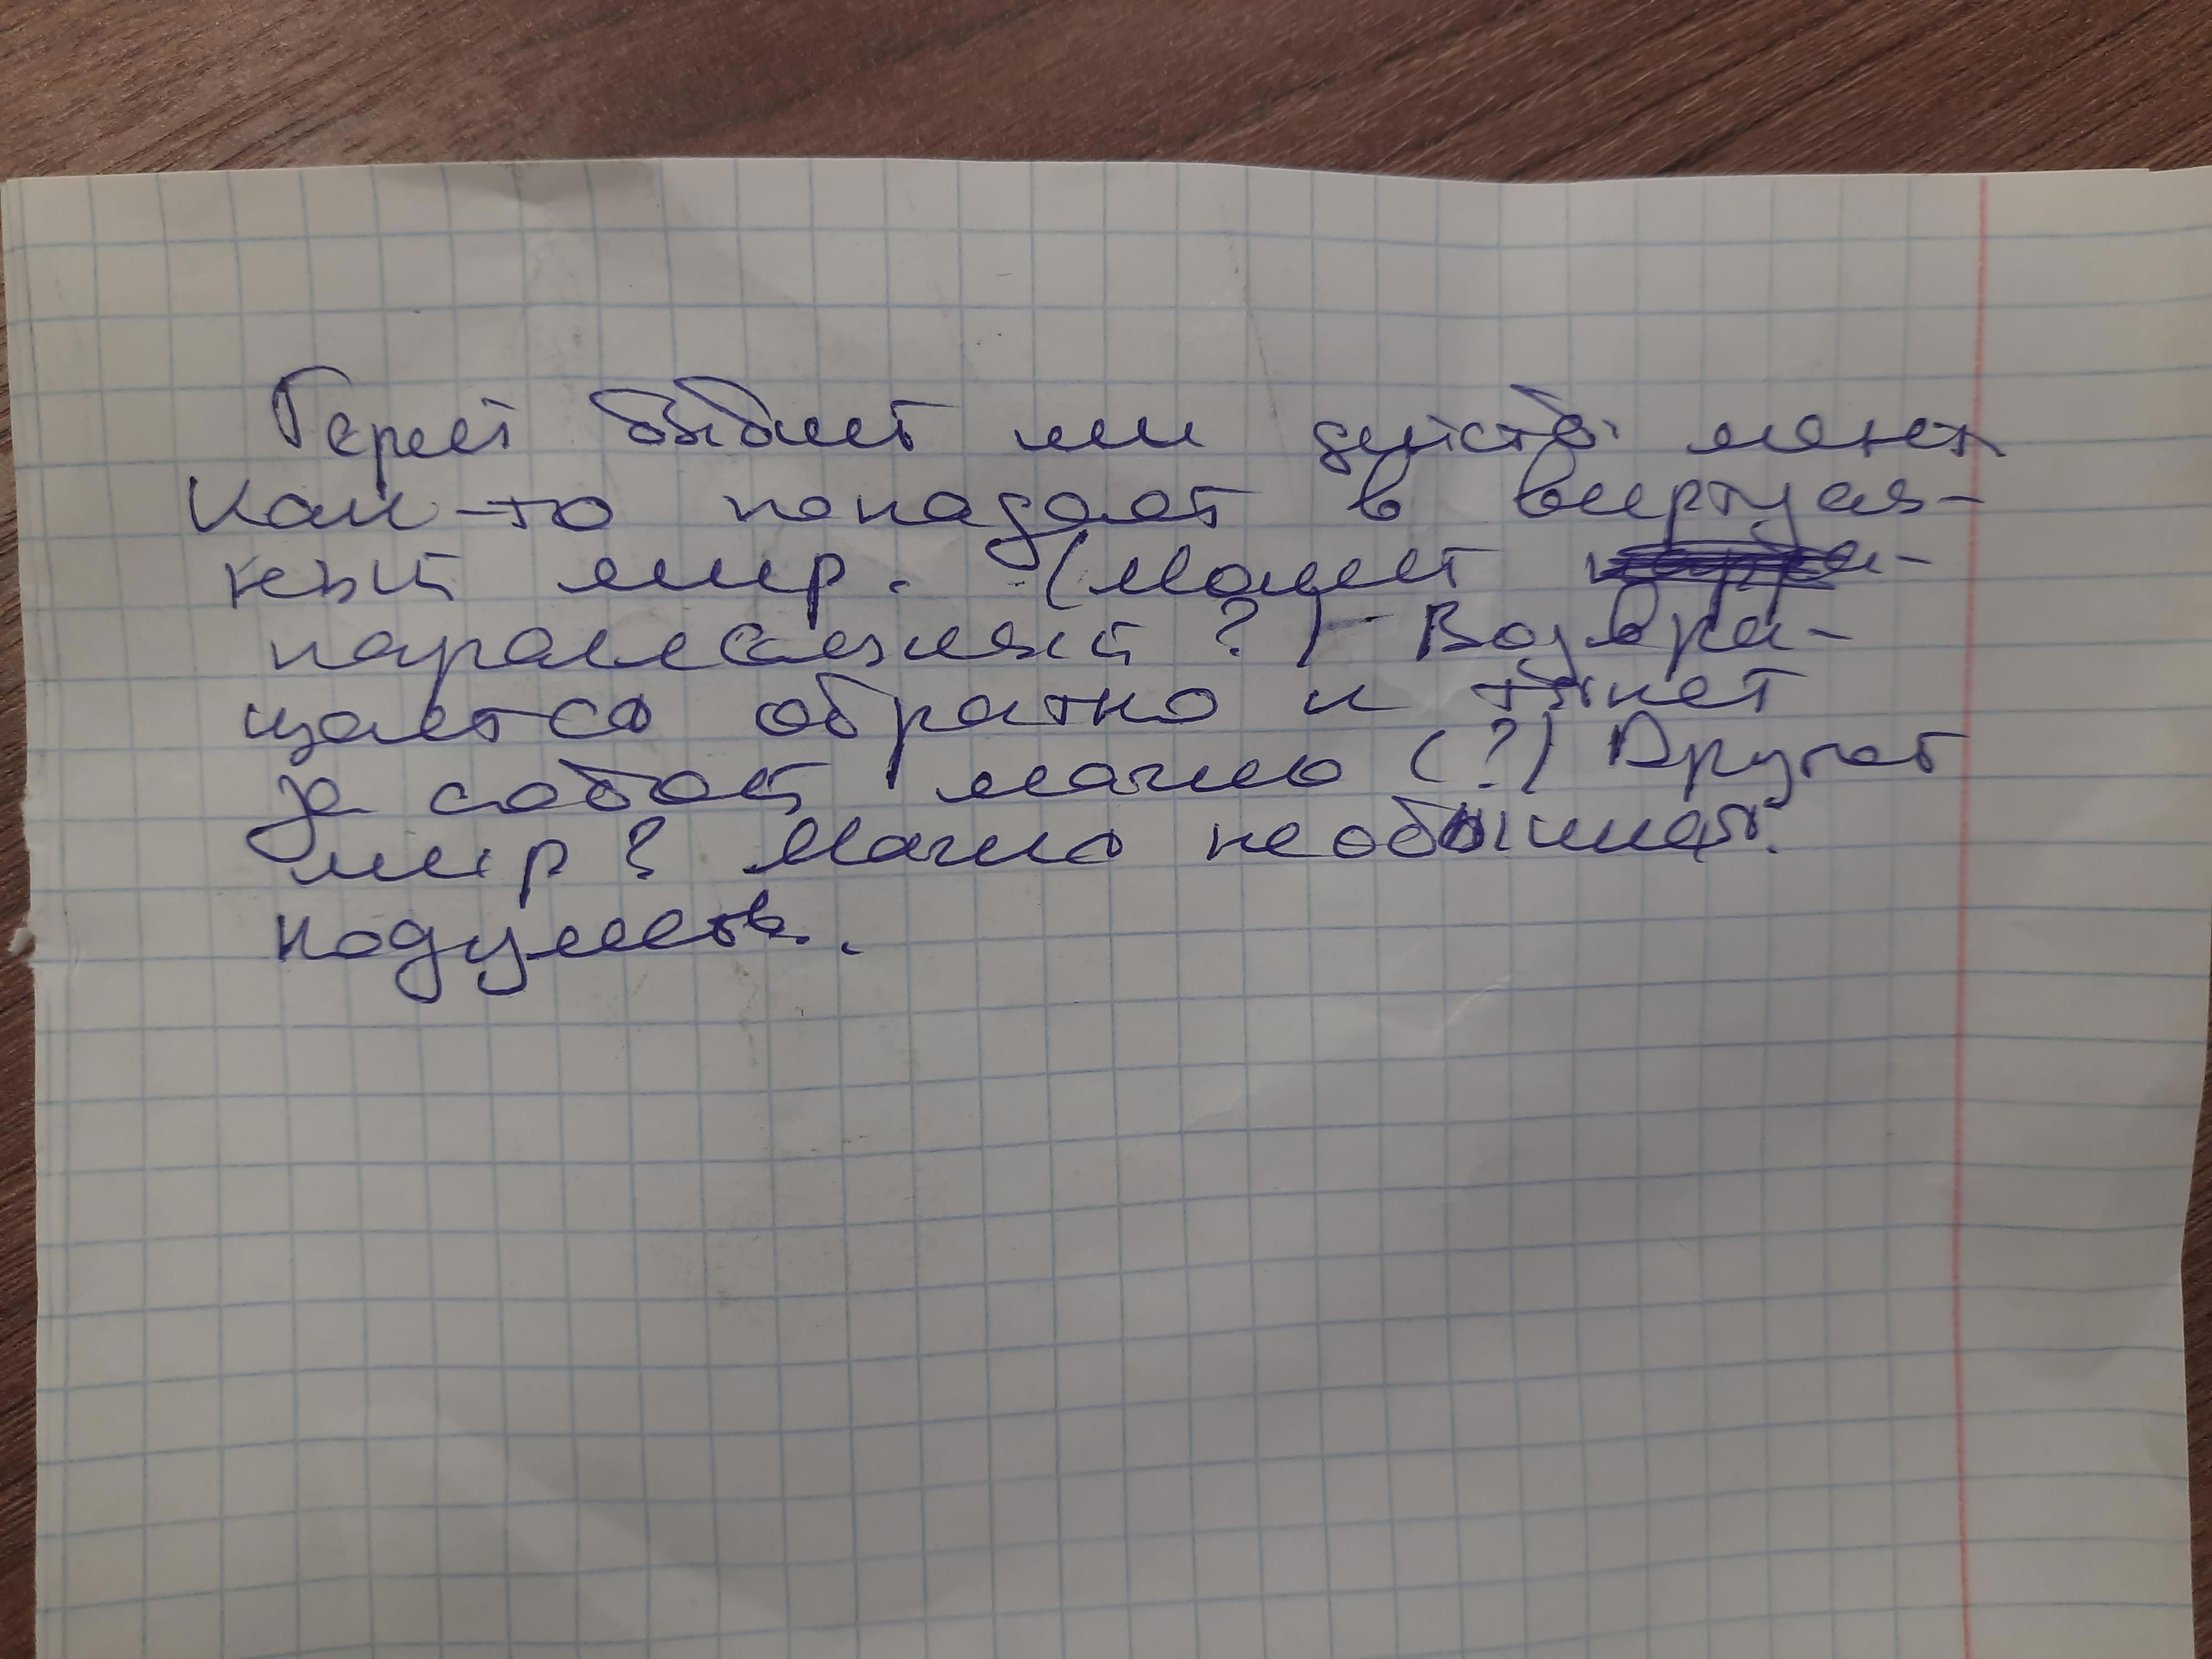 Герой бывший или действ. мент
Как-то попадает в виртуал-
ный мир. (Может
параллельный?) Возвра-
щается обратно и тянет
за собой магию (?) Другой
мир? Магию необычную.
подумать.